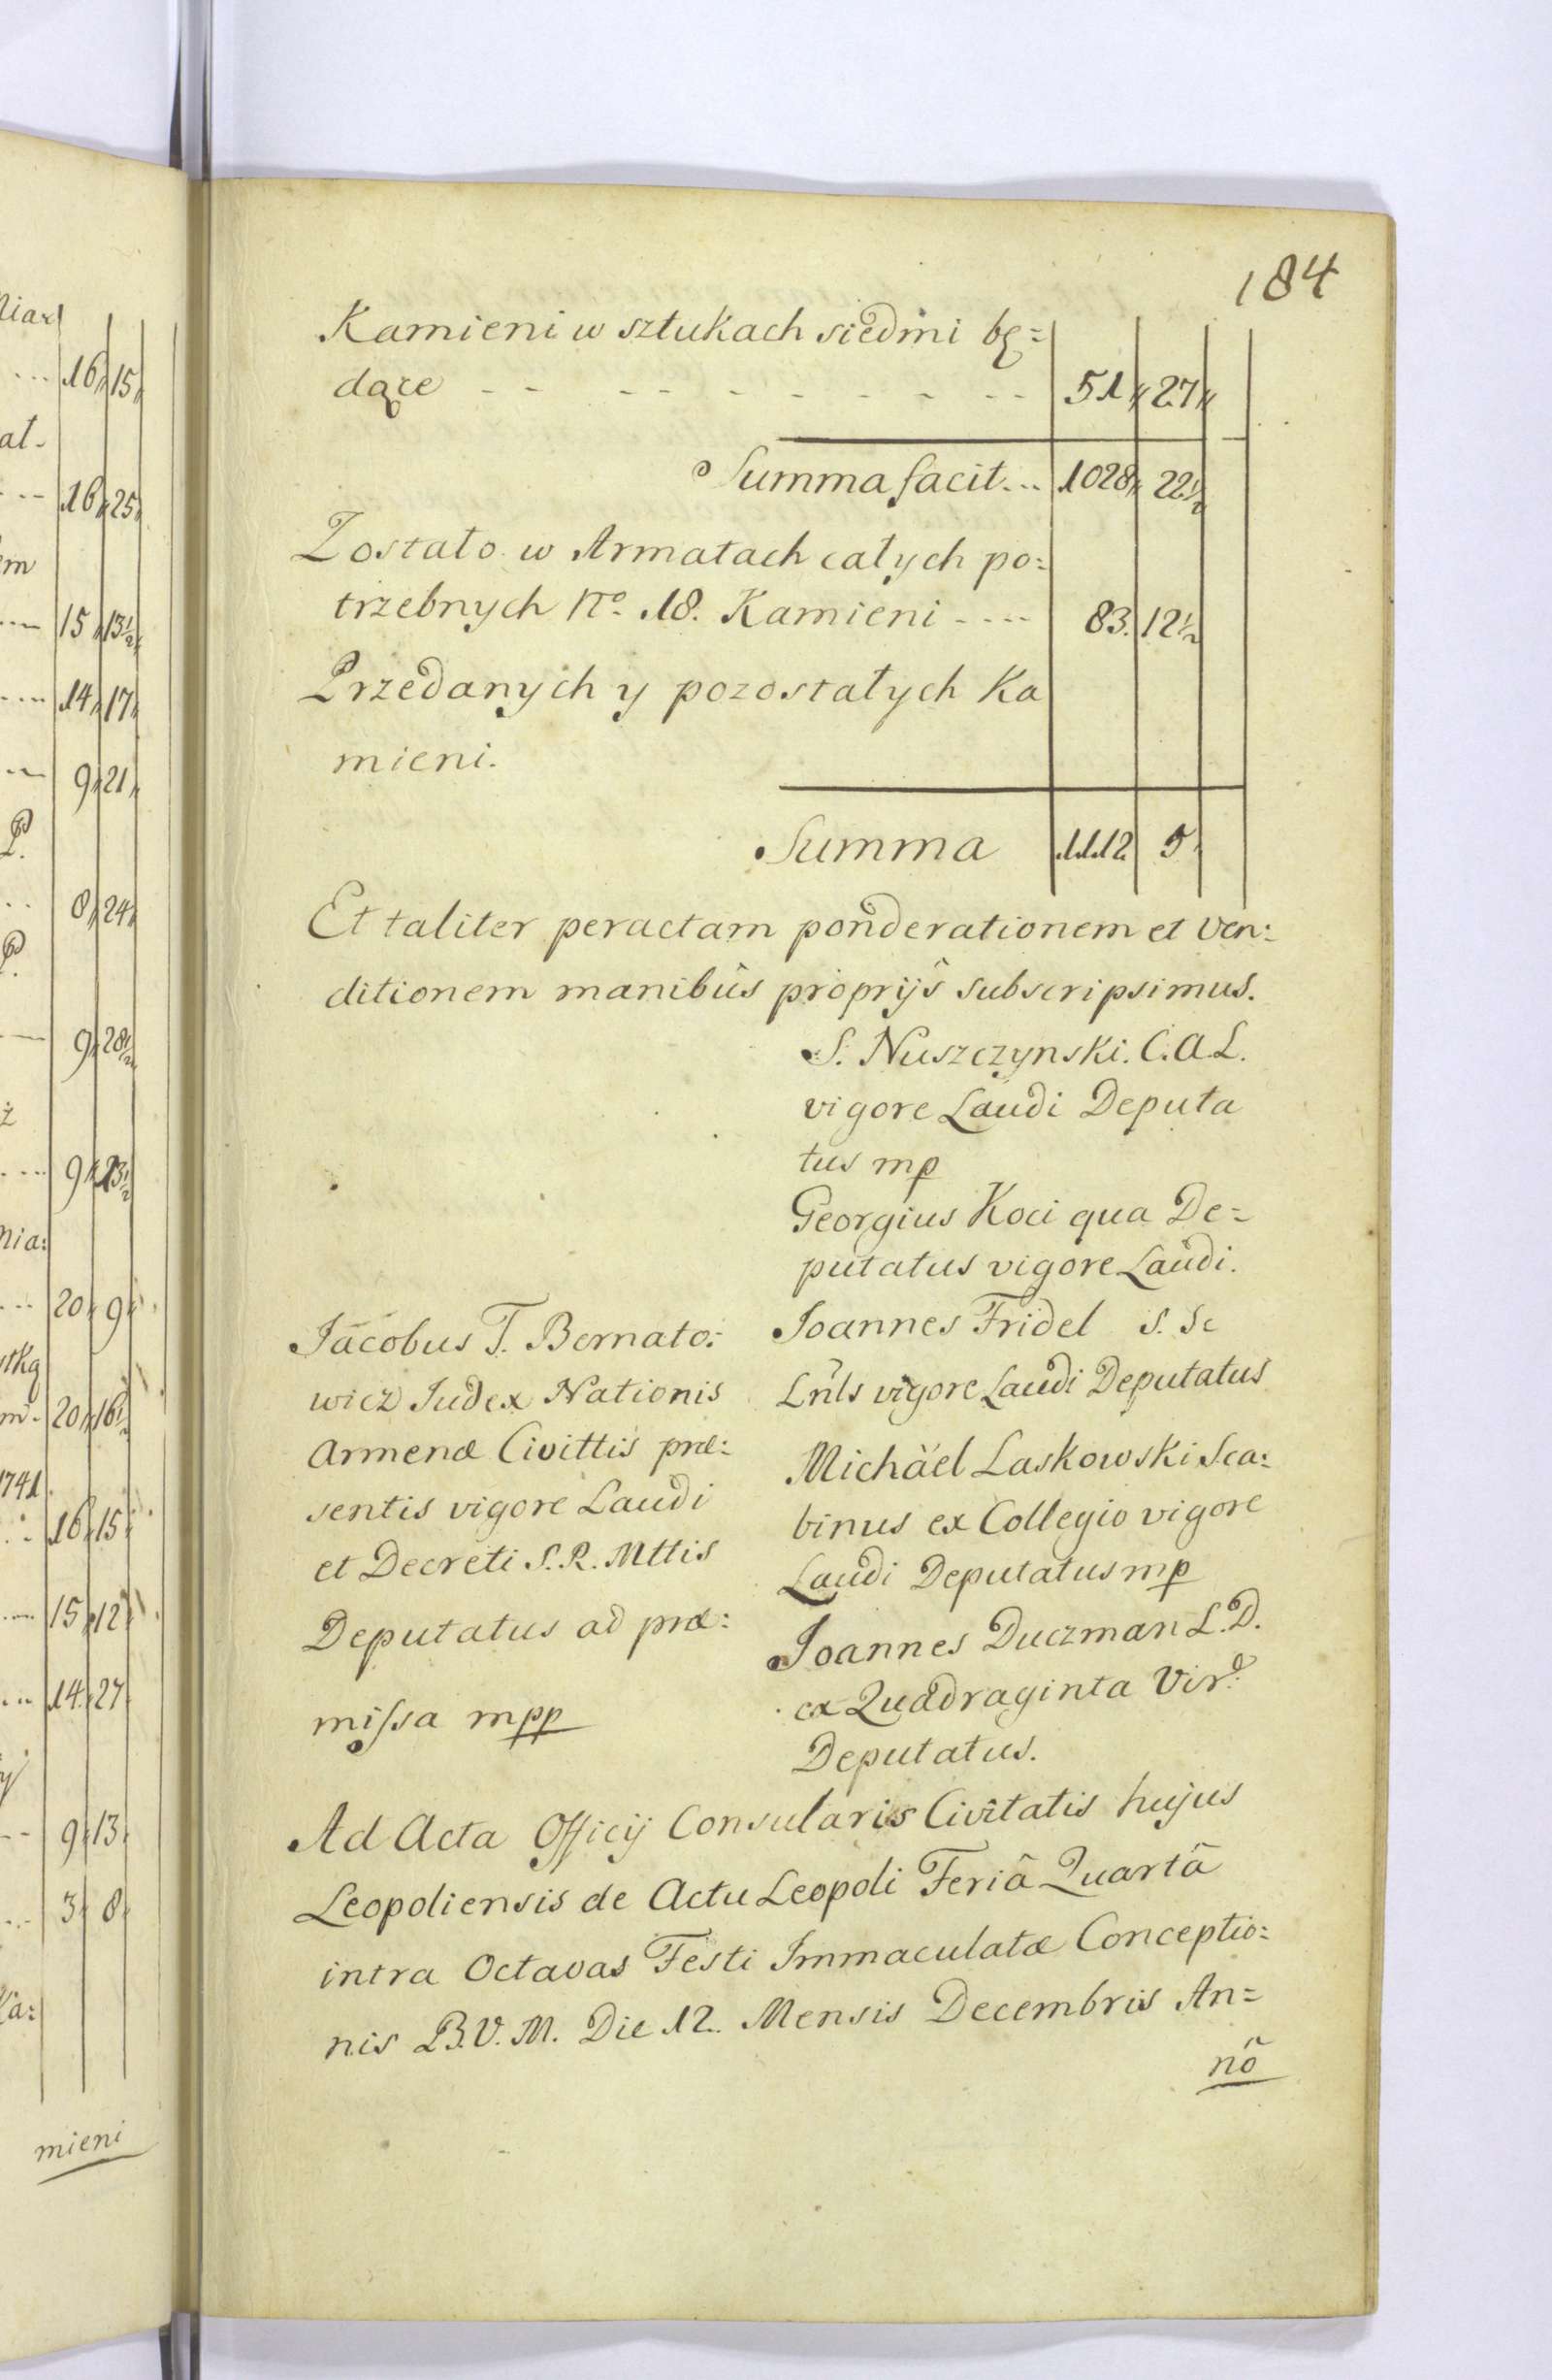 184
Kamieni w sztukach siedmi bę=
dące - - - - - - - - - 51 " 27 "
Summa facit... 1028 " 22½
Zostało w Armatach całych po=
trzebnych No. 18. Kamieni ---- 83. 12½
Przedanych y pozostałych Ka
mieni.
Summa 1112 5
Et taliter peractam ponderationem et ven=
ditionem manibûs proprijs subscripsimus.
S. Nuszczynski. C. A. L.
vigore Laudi Deputa
tus mp
Georgius Koci qua De=
putatus vigore Laudi.
Joannes Fridel S. Sc
Lnls vigore Laudi Deputatus
Michäel Laskowski Sca=
binus ex Collegio vigore
Laudi Deputatus mp
Joannes Duczman L. D.
ex Quadraginta Vir.
Deputatus.
Jacobus T. Bernato=
wicz Judex Nationis
Armenæ Civittis præ=
sentis vigore Laudi
et Decreti S. R. Mttis
Deputatus ad præ=
missa mpp
Ad Acta Officij Consularis Civitatis hujus
Leopoliensis de Actu Leopoli Feriâ Quartâ
intra Octavas Festi Immaculatæ Conceptio=
nis B. V. M. Die 12. Mensis Decembris An=
nô
16 " 15 "
16 " 25 "
15 " 13½
14 " 17 "
9 " 21 "
P.
8 " 24 "
P.
9 " 28½
9 " 13½
nia:
20 " 9 "
20 " 16½
1741.
16 " 15 "
15 " 12 "
14 " 27
9 " 13 "
3 " 8 "
mieni